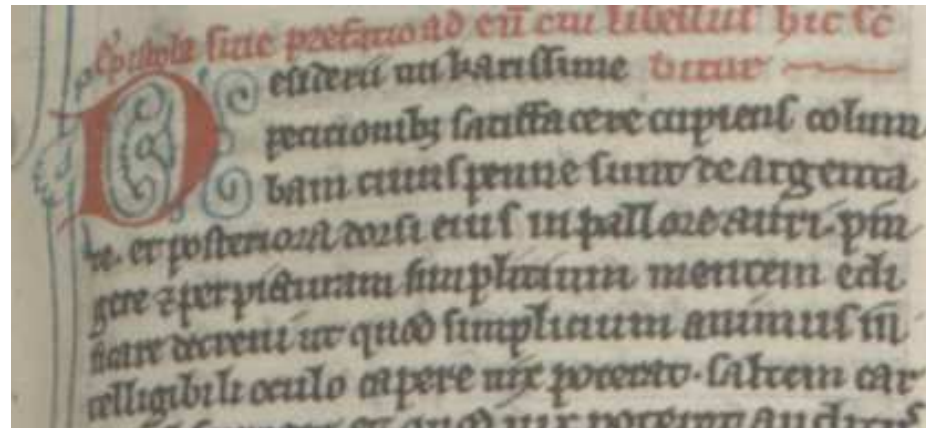 Ep'istola siue prefatio ad eū cui libellus hic sc̄
Desiderii mi karissime bitur
petitionibꝫ satisfacere cupiens colum
bam cuius penne sunt de argenta
te. et posteriora dorsi eius in pallore auri. pin
gere ⁊ per picturam simplicium mentem edi
ficare decreui ut quod simplicium animus in̄
telligibili oculo capere uix poterat. saltem car
quod uix poterat auditus